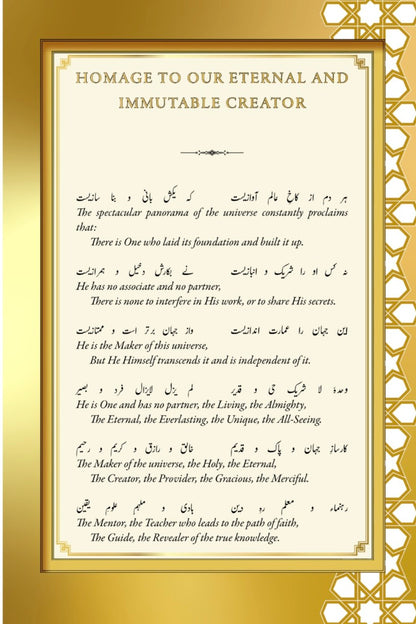 HOMAGE TO OUR ETERNAL AND
IMMUTABLE CREATOR
ہر دم از کاخِ عالم آوازیست کہ یکش بانی و بنا سازیست
The spectacular panorama of the universe constantly proclaims
that:
There is One who laid its foundation and built it up.
نہ کس او را شریک و انبازیست نے بکارش دخیل و ہمرازیست
He has no associate and no partner,
There is none to interfere in His work, or to share His secrets.
ایں جہاں را عمارت اندازیست واز جہاں برتر است و ممتازیست
He is the Maker of this universe,
But He Himself transcends it and is independent of it.
وحدہٗ لا شریک حی و قدیر لم یزل لایزال فرد و بصیر
He is One and has no partner, the Living, the Almighty,
The Eternal, the Everlasting, the Unique, the All-Seeing.
کارساز جہان و پاک و قدیم خالق و رازق و کریم و رحیم
The Maker of the universe, the Holy, the Eternal,
The Creator, the Provider, the Gracious, the Merciful.
رہنماء و معلم رہِ دیں ہادی و ملہم علومِ یقیں
The Mentor, the Teacher who leads to the path of faith,
The Guide, the Revealer of the true knowledge.